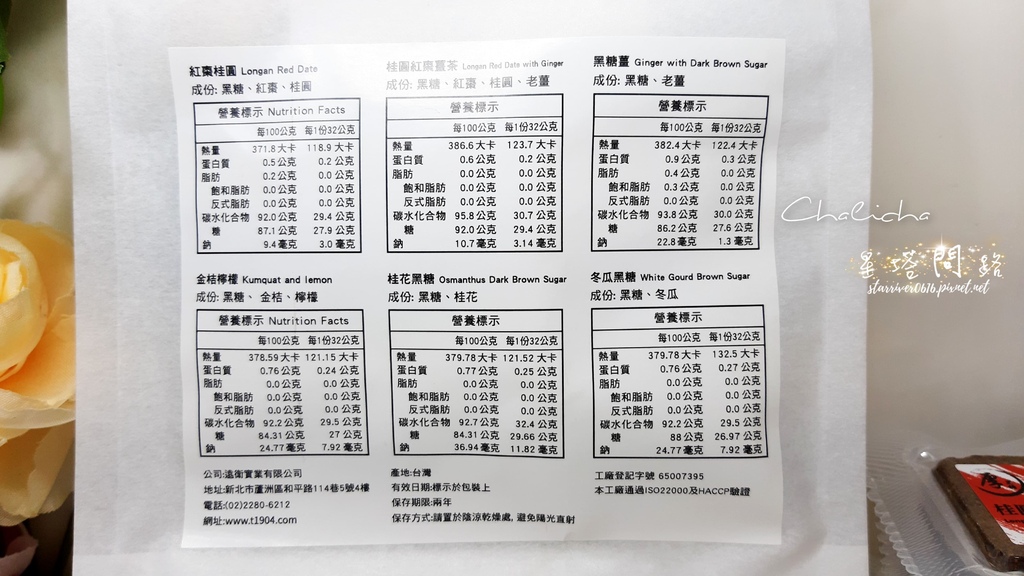 紅棗桂圓 Longan Red Date
成份: 黑糖、紅棗、桂圓
營養標示 Nutrition Facts
每100公克 每1份32公克
熱量 371.8大卡 118.9大卡
蛋白質 0.5公克 0.2公克
脂肪 0.2公克 0.0公克
飽和脂肪 0.0公克 0.0公克
反式脂肪 0.0公克 0.0公克
碳水化合物 92.0公克 29.4公克
糖 87.1公克 27.9公克
鈉 9.4毫克 3.0毫克
桂圓紅棗薑茶 Longan Red Date with Ginger
成份: 黑糖、紅棗、桂圓、老薑
營養標示
每100公克 每1份32公克
熱量 386.6大卡 123.7大卡
蛋白質 0.6公克 0.2公克
脂肪 0.0公克 0.0公克
飽和脂肪 0.0公克 0.0公克
反式脂肪 0.0公克 0.0公克
碳水化合物 95.8公克 30.7公克
糖 92.0公克 29.4公克
鈉 10.7毫克 3.14毫克
黑糖薑 Ginger with Dark Brown Sugar
成份: 黑糖、老薑
營養標示
每100公克 每1份32公克
熱量 382.4大卡 122.4大卡
蛋白質 0.9公克 0.3公克
脂肪 0.4公克 0.0公克
飽和脂肪 0.3公克 0.0公克
反式脂肪 0.0公克 0.0公克
碳水化合物 93.8公克 30.0公克
糖 86.2公克 27.6公克
鈉 22.8毫克 1.3毫克
金桔檸檬 Kumquat and lemon
成份: 黑糖、金桔、檸檬
營養標示 Nutrition Facts
每100公克 每1份32公克
熱量 378.59大卡 121.15大卡
蛋白質 0.76公克 0.24公克
脂肪 0.0公克 0.0公克
飽和脂肪 0.0公克 0.0公克
反式脂肪 0.0公克 0.0公克
碳水化合物 92.2公克 29.5公克
糖 84.31公克 27公克
鈉 24.77毫克 7.92毫克
桂花黑糖 Osmanthus Dark Brown Sugar
成份: 黑糖、桂花
營養標示
每100公克 每1份32公克
熱量 379.78大卡 121.52大卡
蛋白質 0.77公克 0.25公克
脂肪 0.0公克 0.0公克
飽和脂肪 0.0公克 0.0公克
反式脂肪 0.0公克 0.0公克
碳水化合物 92.7公克 32.4公克
糖 84.31公克 29.66公克
鈉 36.94毫克 11.82毫克
冬瓜黑糖 White Gourd Brown Sugar
成份: 黑糖、冬瓜
營養標示
每100公克 每1份32公克
熱量 379.78大卡 132.5大卡
蛋白質 0.76公克 0.27公克
脂肪 0.0公克 0.0公克
飽和脂肪 0.0公克 0.0公克
反式脂肪 0.0公克 0.0公克
碳水化合物 92.2公克 29.5公克
糖 88公克 26.97公克
鈉 24.77毫克 7.92毫克
公司:遠衛實業有限公司
地址:新北市蘆洲區和平路114巷5號4樓
電話:(02)2280-6212
網址:www.t1904.com
產地:台灣
有效日期:標示於包裝上
保存期限:兩年
保存方式:請置於陰涼乾燥處, 避免陽光直射
工廠登記字號 65007395
本工廠通過ISO22000及HACCP驗證
Chalicha
星塔問路
starriver0616.pixnet.net
桂圓